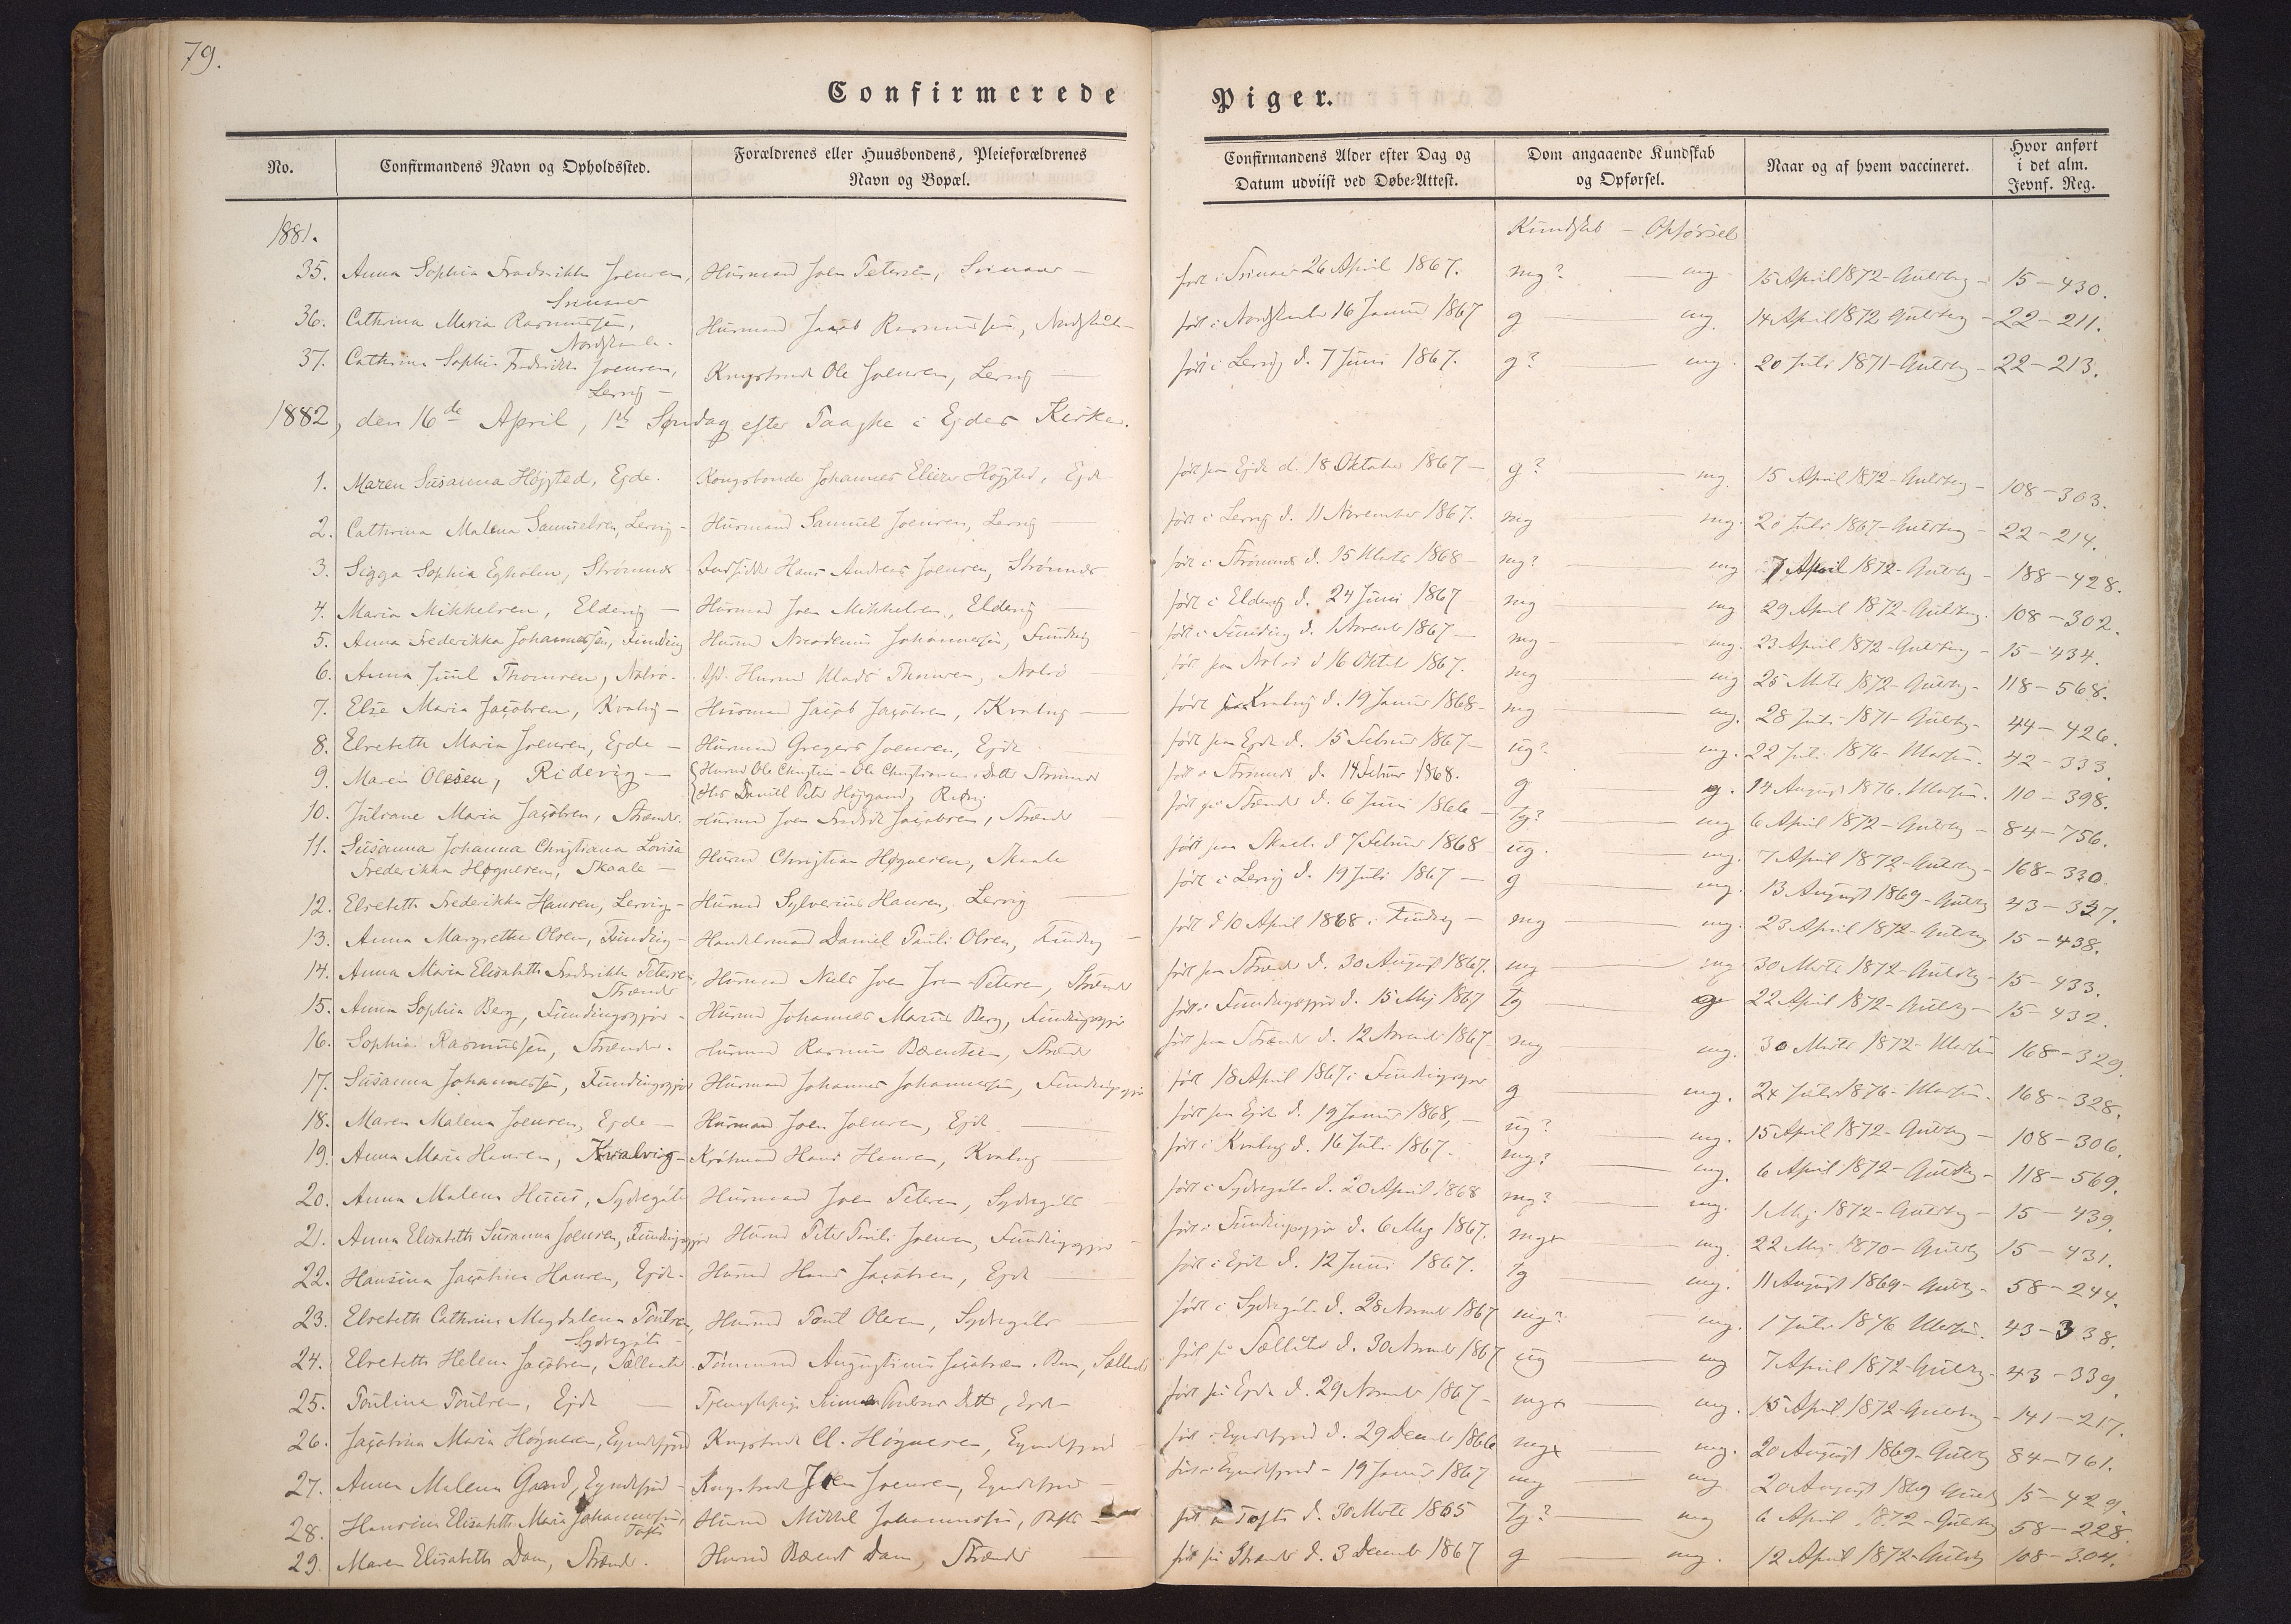 79.
Confirmerede Piger.
No. Confirmandens Navn og Opholdssted. Forældrenes eller Huusbondens, Pleieforældrenes Navn og Bopæl. Confirmandens Alder efter Dag og Datum udviist ved Døbe-Attest. Dom angaaende Kundskab og Opførsel. Naar og af hvem vaccineret. Hvor anført i det alm. Jevnf. Reg.
1881. Kundskab - Opførsel
35. Anna Sophia Fredrikke Joensen, Husmand Joen Petersen, født i 26 April 1867. mg? mg 15 April 1872 - 15-430.
36. Cathrina Maria Rasmussen, Husmand Jacob Rasmussen, født i 16 Januar 1867 g mg. 14 April 1872 22-211.
37. Cathrina Sophie Fredrikke Joensen, Lervig - Kongsbonde Ole Joensen, Lervig født i Lervig d. 7 Juni 1867. g? mg. 20 Juli 1871 - 22-213.
1882, den 16de April, 1ste Søndag efter Paaske i Ejdes Kirke.
1. Maren Susanna Højsted, Ejde. Kongsbonde Johannes Elieser Højsted, Ejde født paa Ejde d. 18 Oktober 1867 - g? mg. 15 April 1872 - 108-303.
2. Cathrina Malena Samuelsen, Lervig - Husmand Samuel Joensen, Lervig født i Lervig d. 11 November 1867. mg mg. 20 Juli 1867 - 22-214.
3. Sigga Sophia Egholm, Strømnæs - Hans Andreas Joensen, Strømnæs født i Strømnæs d. 15 Marts 1868 - mg? mg 7 April 1872 - 188-428.
4. Maria Mikkelsen, Eldevig - Husmand Joen Mikkelsen, Eldevig født i Eldevig d. 24 Juni 1867 mg mg 29 April 1872 - 108-302.
5. Anna Frederikka Johannessen, Funding Husmd Nicodemus Johannessen, Funding født i Funding d. 1 Novemb 1867 - mg mg. 23 April 1872 - 15-434.
6. Anna Juul Thomsen, Nolsø. Husmd Mads Thomsen, Nolsø født paa Nolsø d 16 Oktob 1867. mg mg 25 Marts 1872 - 118-568.
7. Else Maria Jacobsen, Kvalvig - Husmand Jacob Jacobsen, Kvalvig født Kvalvig d. 19 Januar 1868 - mg mg. 28 Juli 1871 - 44-426.
8. Elsebeth Maria Joensen, Ejde - Husmand Gregers Joensen, Ejde født paa Ejde d. 15 Februar 1867 - ug? mg. 22 Juli 1876 - 42-333.
9. Maren Olesen, Ridevig - Husmd Ole Christian - Ole Christiansens Datter Strømnæs Daniel Peter Højgaard, født i Strømnæs d. 14 Februar 1868. g g. 14 August 1876. 110-398.
10. Juliane Maria Jacobsen, Strænder. Husmd Joen Fredrik Jacobsen, Strænder født paa Strænder d. 6 Juni 1866 - tg? mg 6 April 1872 - 84-756.
11. Susanna Johanna Christiana Lovisa Frederikka Høgnesen, Skaale - Husmd Christian Høgnesen, Skaale født paa Skaale d 7 Februar 1868 ug. mg. 7 April 1872 - 168-330.
12. Elsebeth Frederikka Hansen, Lervig - Husmd Sylverius Hansen, Lervig født i Lervig d. 19 Juli 1867 - g mg. 13 August 1869 - 43-337.
13. Anna Margrethe Olsen, Funding - Handelsmand Daniel Pauli Olsen, Funding født d 10 April 1868 i Funding - mg mg. 23 April 1872 - 15-438.
14. Anna Maria Elisabeth Fredrikke Petersen, Strænder Husmand Niels Joen Petersen, Strænder født paa Strænder d. 30 August 1867. mg mg 30 Marts 1872 - 15-433.
15. Anna Sophia Berg, Fundingsgjov - Husmd Johannes Marius Berg, Fundingsgjov født i Fundingsgjov d. 15 Maj 1867 tg g 22 April 1872 - 15-432.
16. Sophia Rasmussen, Strænder. Husmand Rasmus Bærentsen, Strænder født paa Strænder d. 12 Novemb 1867 mg mg. 30 Marts 1872 - 168-329.
17. Susanna Johannessen, Fundingsgjov Husmand Johannes Johannessen, Fundingsgjov født 18 April 1867 i Fundingsgjov g mg. 24 Juli 1876 - 168-328.
18. Maren Malena Joensen, Ejde - Husmand Joen Joensen, Ejde født paa Ejde d. 19 Januar 1868, - ug? mg. 15 April 1872 - 108-306.
19. Anna Maria Hansen, Kvalvig - Hans Hansen, Kvalvig født i Kvalvig d. 16 Juli 1867. mg? mg. 6 April 1872 - 118-569.
20. Anna Malena Sydregøte Husmand Joen Petersen, Sydregøte født i Sydregøte d. 20 April 1868 mg? mg. 1 Maj 1872 - 15-439.
21. Anna Elisabeth Susanna Joensen, Fundingsgjov Husmd Peter Pauli Joensen, Fundingsgjov født i Fundingsgjov d. 6 Maj 1867. mg+ mg. 22 Maj 1870 - 15-431.
22. Hansina Jacobina Hansen, Ejde - Husmd Hans Jacobsen, Ejde født i Ejde d. 12 Juni 1867. tg mg. 11 August 1869 - 58-244.
23. Elsebeth Cathrina Magdalena Poulsen, Sydregøte - Husmd Poul Olesen, Sydregøte født i Sydregøte d. 28 Novemb 1867 mg? mg. 1 Juli 1876 43-338.
24. Elsebeth Helena Jacobsen, Augustinus Jacobsen født d. 30 Novemb 1867 ug mg 7 April 1872 - 43-339.
25. Poulina Poulsen, Ejde født paa Ejde d. 29 Novemb 1867 - mg+ mg. 15 April 1872 - 141-217.
26. Jacobina Maria Høgnesen, Eyndefjord Kongsbonde Høgnesen, Eyndefjord født i Eyndefjord d. 29 Decemb 1866 mg+ mg. 20 August 1869 - 84-761.
27. Anna Malena Eyndefjord - Kongsbonde Joen Joensen, Eyndefjord født i Eyndefjord - 19 Januar 1867 mg mg 20 August 1869 15-429.
28. Hansina Elisabeth Maria Johannessen, Tofte Husmd Mikkel Johannessen, Tofte født i Tofte d. 30 Marts 1865 tg? mg 6 April 1872 - 58-228.
29. Maren Elisabeth Dam, Strænder. Husmd Bærent Dam, Strænder født paa Strænder d. 3 Decemb 1867 g mg. 12 April 1872 - 108-304.